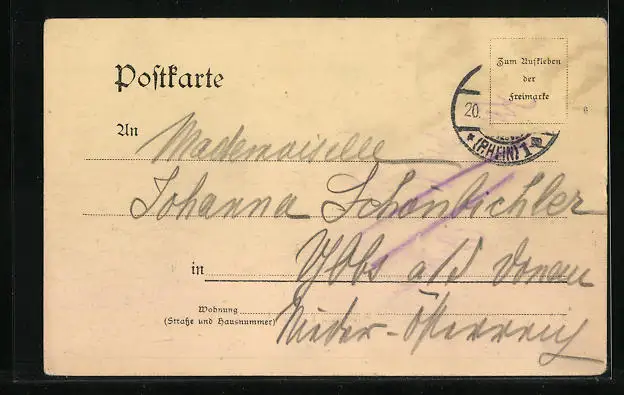 Postkarte
Zum Aufkleben
der
Freimarke
20.
(RHEIN) 1
An Mademoiselle
Johanna Schönbichler
in Ybbs a/d Donau
Wohnung
(Straße und Hausnummer)
Nieder-Österreich